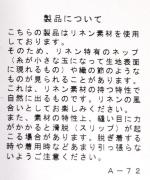 製品について
こちらの製品はリネン素材を使用
しております。
そのため、リネン特有のネップ
(糸が小さな玉になって生地表面
に現れるもの)や織の節のような
ものが見られることがあります。
これは、リネン素材の持つ特性で
自然に出るものです。リネンの風
合いとしてお楽しみください。
また、素材の特性上、縫い目に力
がかかると滑脱(スリップ)が起
こる場合があります。椅子着する
時や着用時などあまり引っ張らな
いようご注意ください。
A-72